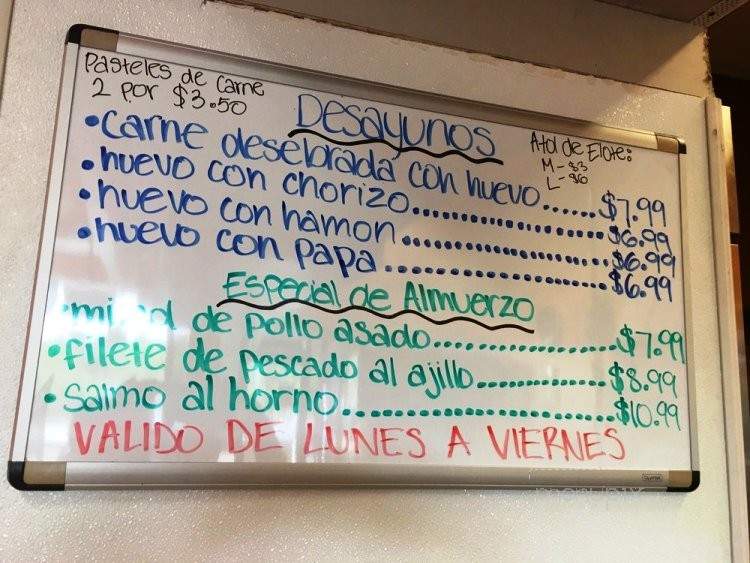 Pasteles de Carne
2 por $3.50
Desayunos
Atol de Elote:
M - $3
L -
• carne desebrada con huevo......$7.99
• huevo con chorizo..................$6.99
• huevo con hamon..................$6.99
• huevo con papa..................$6.99
Especial de Almuerzo
de pollo asado..................$7.99
• filete de pescado al ajillo...............$8.99
• salmo al horno........................$10.99
VALIDO DE LUNES A VIERNES